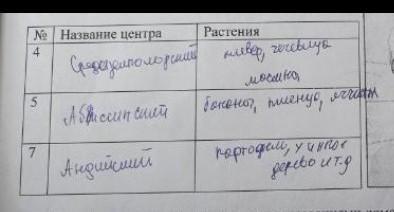 № Название центра Растения
4 Средиземоморский клевер, чечевица
маслина
5 Абиссинский бананы, пшеница, ячмень
7 Андийский картофель, хинное
дерево и т.д